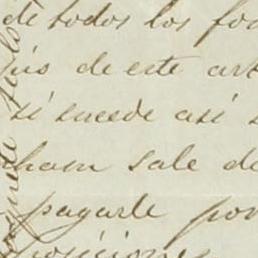 de todos los fon
ús de este art
si sucede así s
ham sale de
pagarle por
posiciones